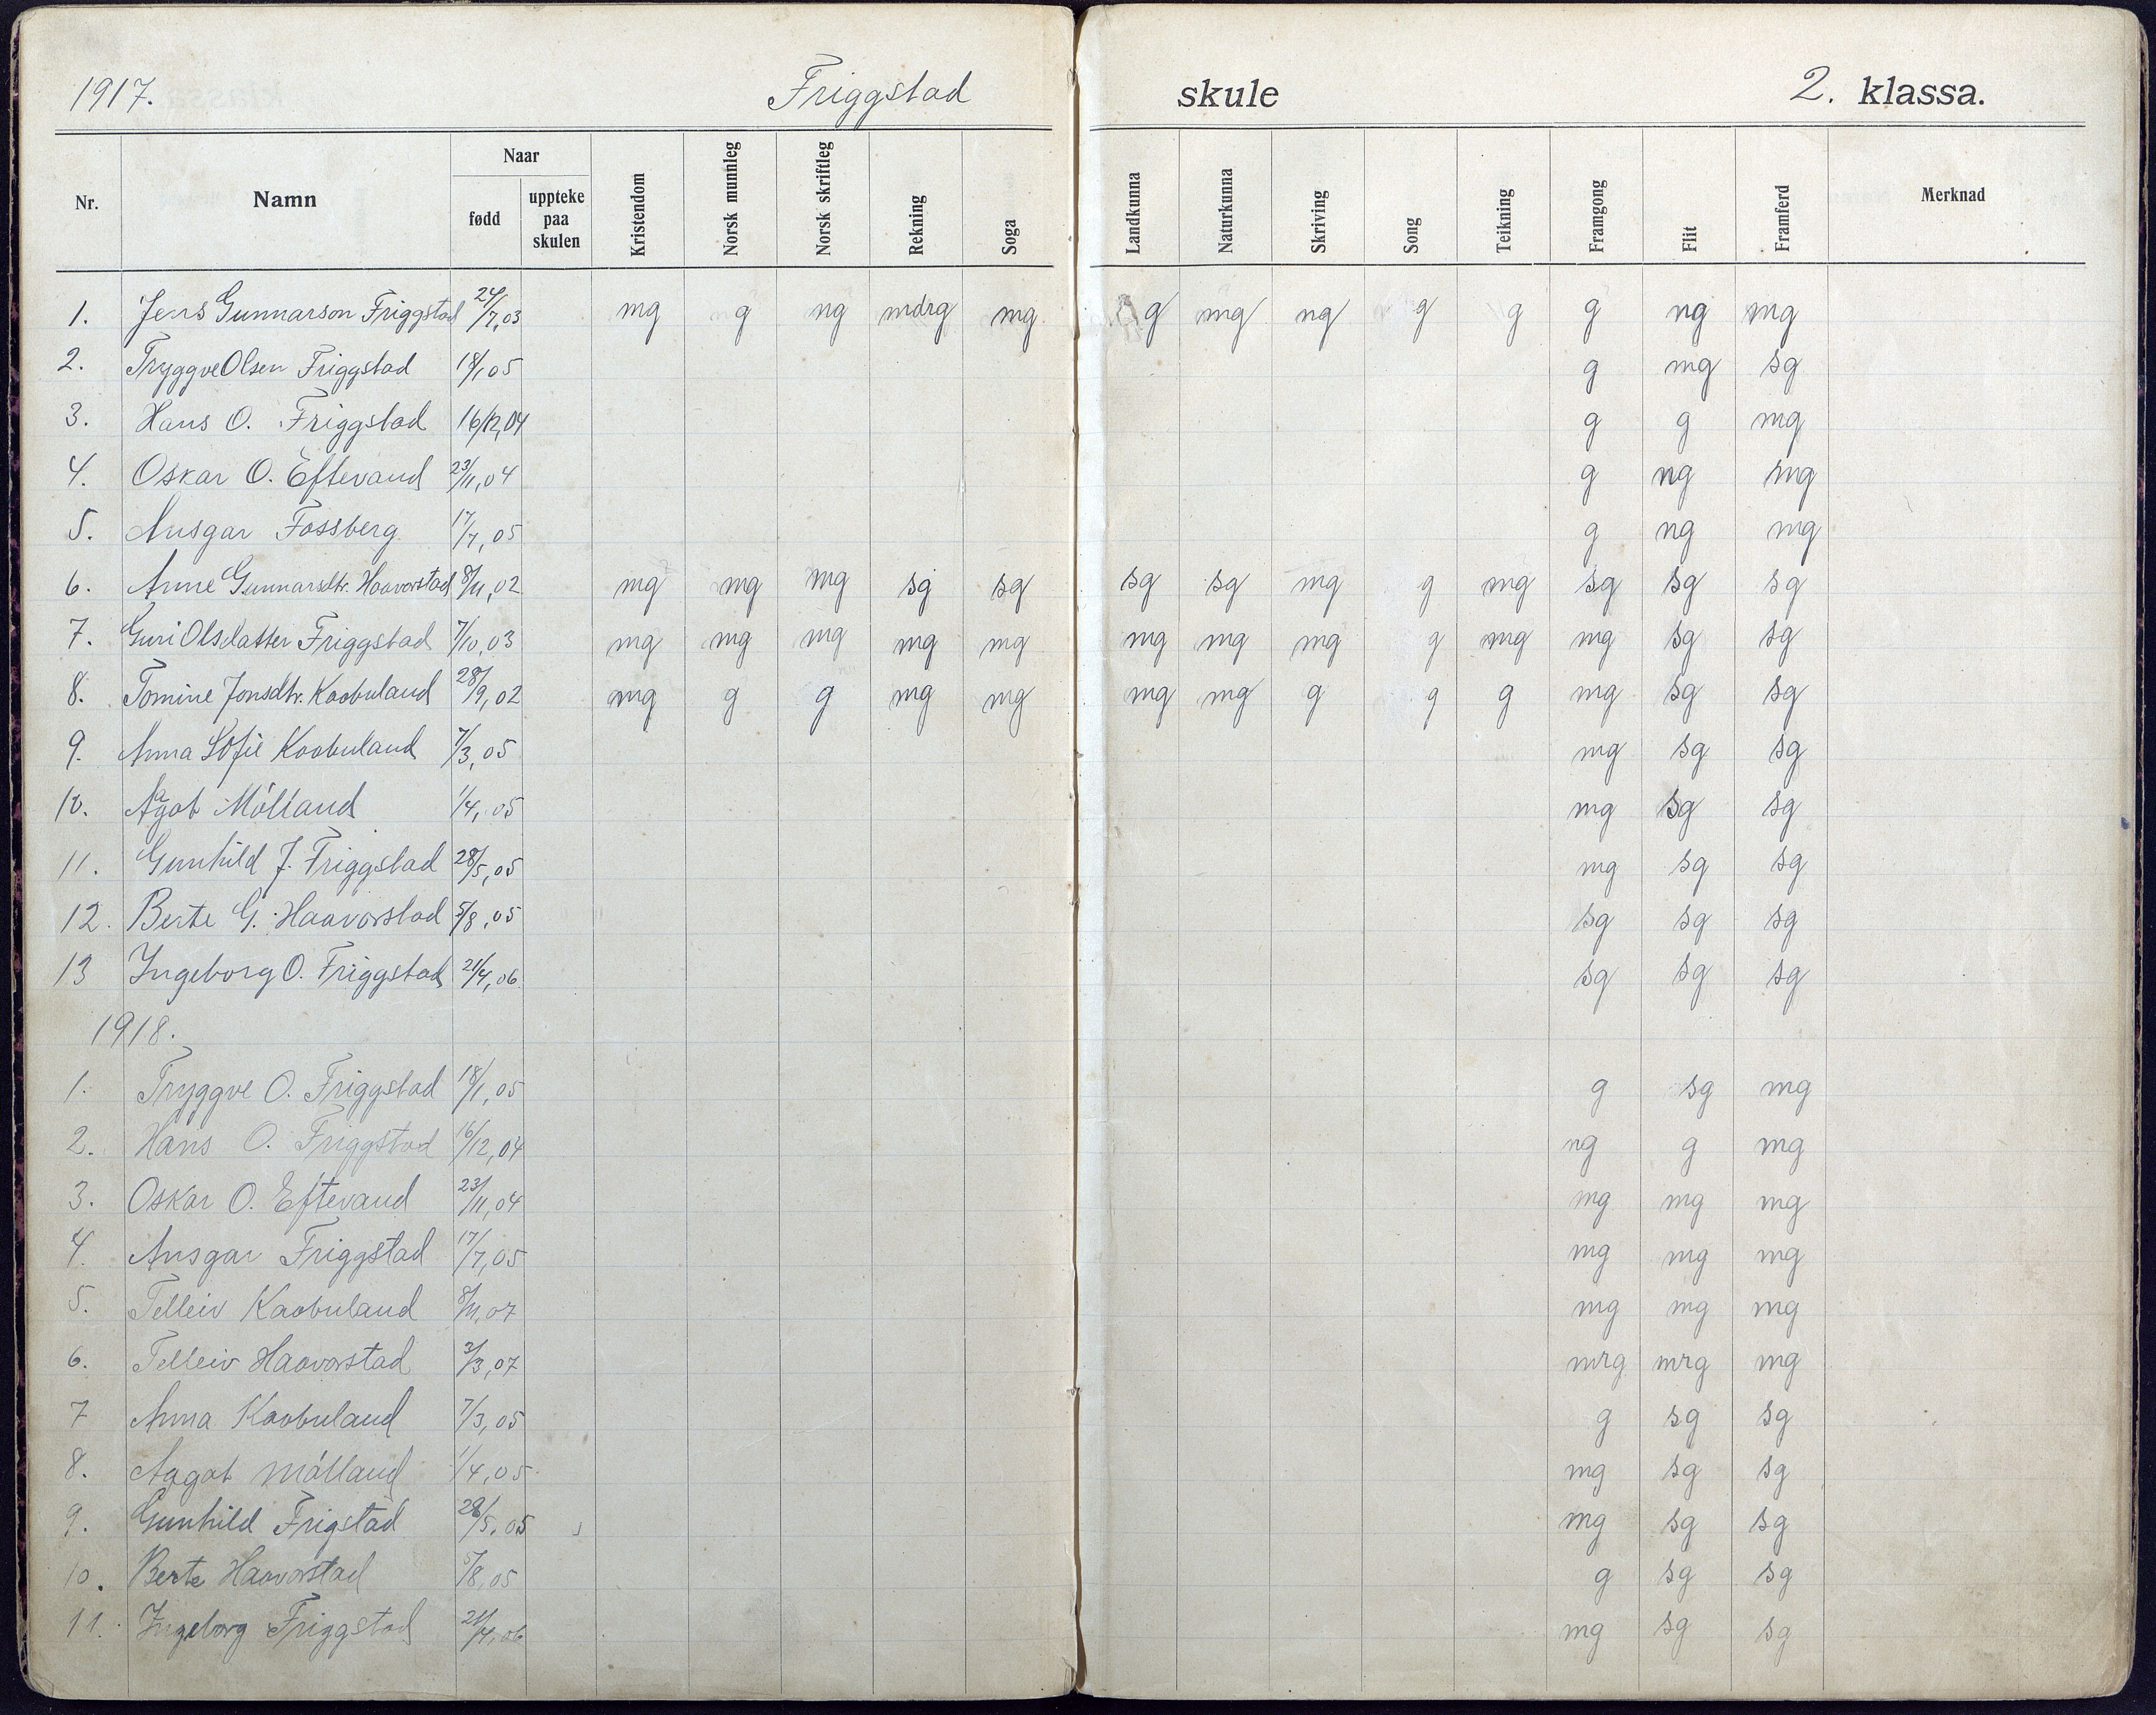 1917. Friggstad skule 2. klassa.
Nr. Namn Naar fødd uppteke paa skulen Kristendom Norsk munnleg Norsk skriftleg Rekning Soga Landkunna Naturkunna Skriving Song Teikning Framgong Flit Framferd Merknad
1. Jens Gunnarson Friggstad 24/7,03 mg g ng mdrg mg g mg ng g g g ng mg
2. Tryggve Olsen Friggstad 18/1,05 g mg sg
3. Hans O. Friggstad 16/12,04 g g mg
4. Oskar O. Eftevand 23/11,04 g ng mg
5. Ansgar Fossberg 17/7,05 g ng mg
6. Anne Gunnarsdtr. Haavorstad 8/11,02 mg mg mg sg sg sg sg mg g mg sg sg sg
7. Guri Olsdatter Friggstad 7/10,03 mg mg mg mg mg mg mg mg g mg mg sg sg
8. Tomine Jonsdtr. Kaabuland 28/9,02 mg g g mg mg mg mg g g g mg sg sg
9. Anna Sofie Kaabuland 7/3,05 mg sg sg
10. Aagot Mölland 1/4,05 mg sg sg
11. Gunhild J. Friggstad 28/5,05 mg sg sg
12. Berte G. Haavorstad 5/8,05 sg sg sg
13 Ingeborg O. Friggstad 21/4,06 sg sg sg
1918.
1. Tryggve O. Friggstad 18/1,05 g sg mg
2. Hans O. Friggstad 16/12,04 ng g mg
3. Oskar O. Eftevand 23/11,04 mg mg mg
4. Ansgar Friggstad 17/7,05 mg mg mg
5. Telleiv Kaabuland 8/11,07 mg mg mg
6. Telleiv Haavorstad 3/3,07 mrg mrg mg
7 Anna Kaabuland 7/3,05 g sg sg
8. Aagot Mölland 1/4,05 mg sg sg
9. Gunhild Frigstad 28/5,05 mg sg sg
10. Berte Haavorstad 5/8,05 g sg sg
11. Ingeborg Friggstad 21/4,06 mg sg sg